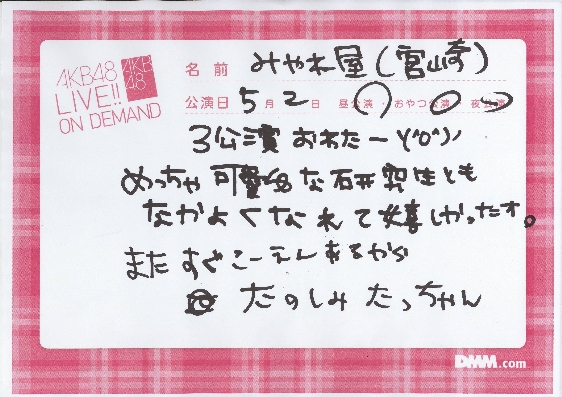 AKB48
LIVE!!
ON DEMAND
AKB
48
名前 みやね屋(宮崎)
公演日 5月2日 昼公演・おやつ公演・夜公演
3公演おわたーヽ(^o^)ノ
めっちゃ可愛な研究生とも
なかよくなれて嬉しかったオ。
またすぐこーえんあるから
たのしみたっちゃん
DMM.com